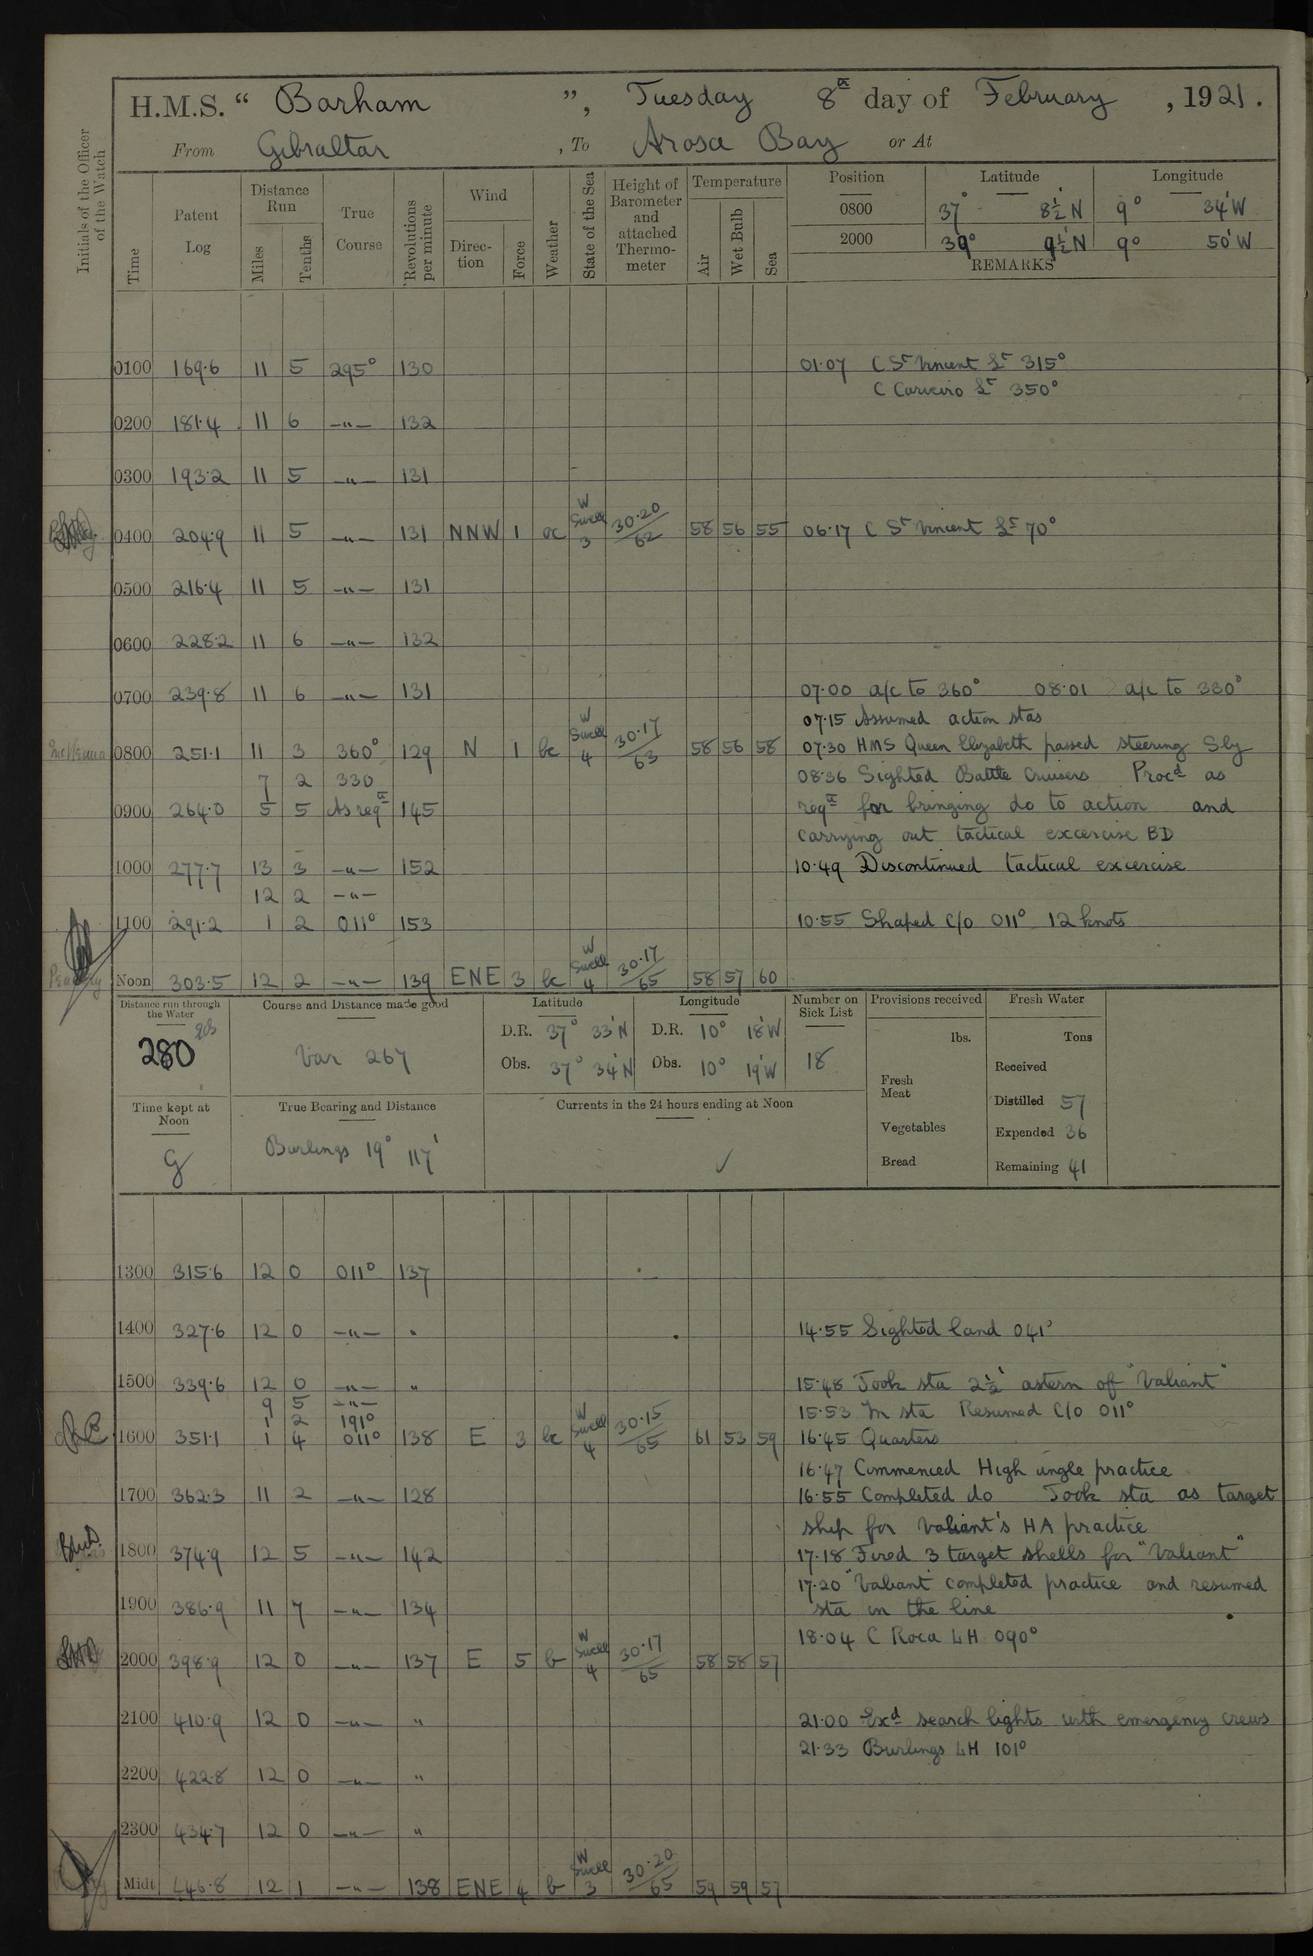 H.M.S. “ Barham ”, Tuesday 8th day of February, 1921.
From Gibraltar, To Arosa Bay or At
Initials of the Officer of the Watch
Time
Patent Log
Distance Run
Miles
Tenths
True Course
Revolutions per minute
Wind
Direc-tion
Force
Weather
State of the Sea
Height of Barometer and attached Thermo-meter
Temperature
Air
Wet Bulb
Sea
Position Latitude Longitude
0800 37° 8½' N 9° 34' W
2000 39° 9½' N 9° 50' W
REMARKS
0100 169·6 11 5 295° 130 01·07 C St Vincent Lt 315°
C Carveiro Lt 350°
0200 181·4 11 6 —"— 132
0300 193·2 11 5 —"— 131
0400 204·9 11 5 —"— 131 NNW 1 oc W Swell 3 30·20/62 58 56 55 06·17 C St Vincent Lt 70°
0500 216·4 11 5 —"— 131
0600 228·2 11 6 —"— 132
0700 239·8 11 6 —"— 131 07·00 a/c to 360° 08·01 a/c to 330°
07·15 Assumed action stas
0800 251·1 11 3 360° 129 N 1 bc W Swell 4 30·17/63 58 56 58 07·30 HMS Queen Elizabeth passed steering Sly
7 2 330 08·36 Sighted Battle Cruisers Procd as
0900 264·0 5 5 As reqd 145 reqd for bringing do to action and
carrying out tactical excercise BD
1000 277·7 13 3 —"— 152 10·49 Discontinued tactical excercise
12 2 —"—
1100 291·2 1 2 011° 153 10·55 Shaped C/o 011° 12 knots
Noon 303·5 12 2 —"— 139 ENE 3 bc W Swell 4 30·17/65 58 57 60
Distance run through the Water
280
Course and Distance made good
Var 267
Latitude
D.R. 37° 33' N
Obs. 37° 34' N
Longitude
D.R. 10° 18' W
Obs. 10° 19' W
Number on Sick List
18
Provisions received
lbs.
Fresh Meat
Vegetables
Bread
Fresh Water
Tons
Received
Distilled 57
Expended 36
Remaining 41
Time kept at Noon
G
True Bearing and Distance
Burlings 19° 117'
Currents in the 24 hours ending at Noon
✓
1300 315·6 12 0 011° 137
1400 327·6 12 0 —"— " 14·55 Sighted land 041°
1500 339·6 12 0 —"— " 15·48 Took sta 2½' astern of "Valiant"
9 5 —"—
1 2 191° 15·53 In sta Resumed C/o 011°
1600 351·1 1 4 011° 138 E 3 bc W Swell 4 30·15/65 61 53 59 16·45 Quarters
16·47 Commenced High angle practice
1700 362·3 11 2 —"— 128 16·55 Completed do Took sta as target
ship for Valiant's HA practice
1800 374·9 12 5 —"— 142 17·18 Fired 3 target shells for "Valiant"
17·20 "Valiant" completed practice and resumed
1900 386·9 11 7 —"— 134 sta in the line
18·04 C Roca LH 090°
2000 398·9 12 0 —"— 137 E 5 b W Swell 4 30·17/65 58 58 57
2100 410·9 12 0 —"— " 21·00 Exd search lights with emergency crews
21·33 Burlings LH 101°
2200 422·8 12 0 —"— "
2300 434·7 12 0 —"— "
Midt 446·8 12 1 —"— 138 ENE 4 b W Swell 3 30·20/65 59 59 57